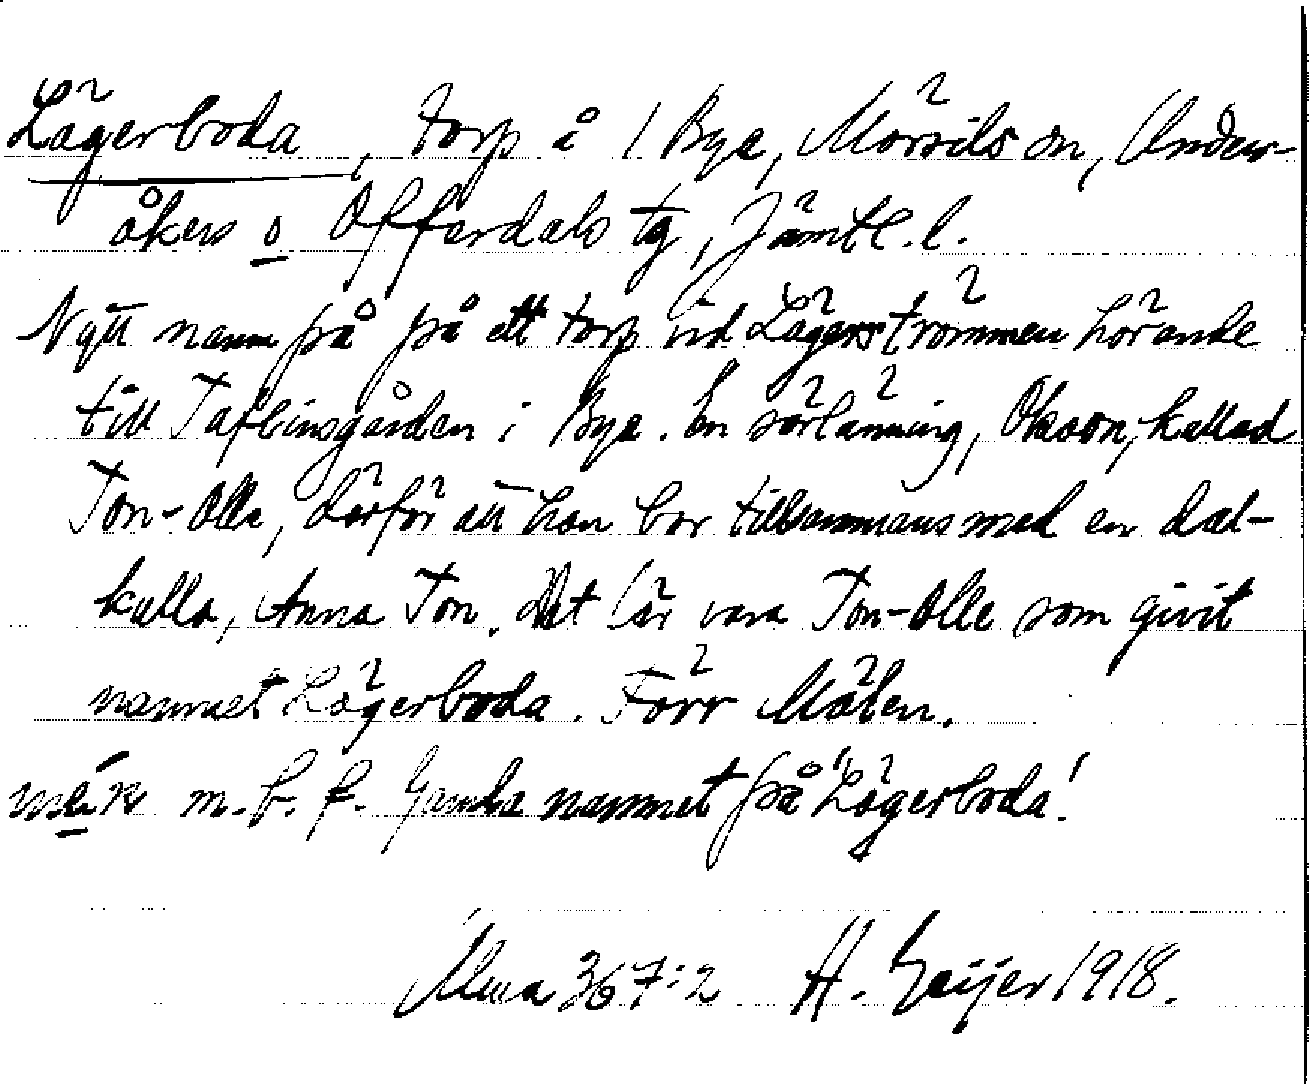 Lägerboda, torp å 1 Bye, Mörsils sn, Under-
åkers o Offerdals tg, Jämtl. l.
Nytt namn på på ett torp vid Lägerströmmen hörande
till Taflinsgården i Bye. En sörlänning, Olsson, kallad
Ton-Olle, därför att han bor tillsammans med en dal-
kulla, Anna Ton. Det lär vara Ton-Olle som givit
namnet Lägerboda. Förr Mälen.
m. b. f. Gamla namnet på "Lägerboda!
Ulma 367:2 H. Geijer 1918.